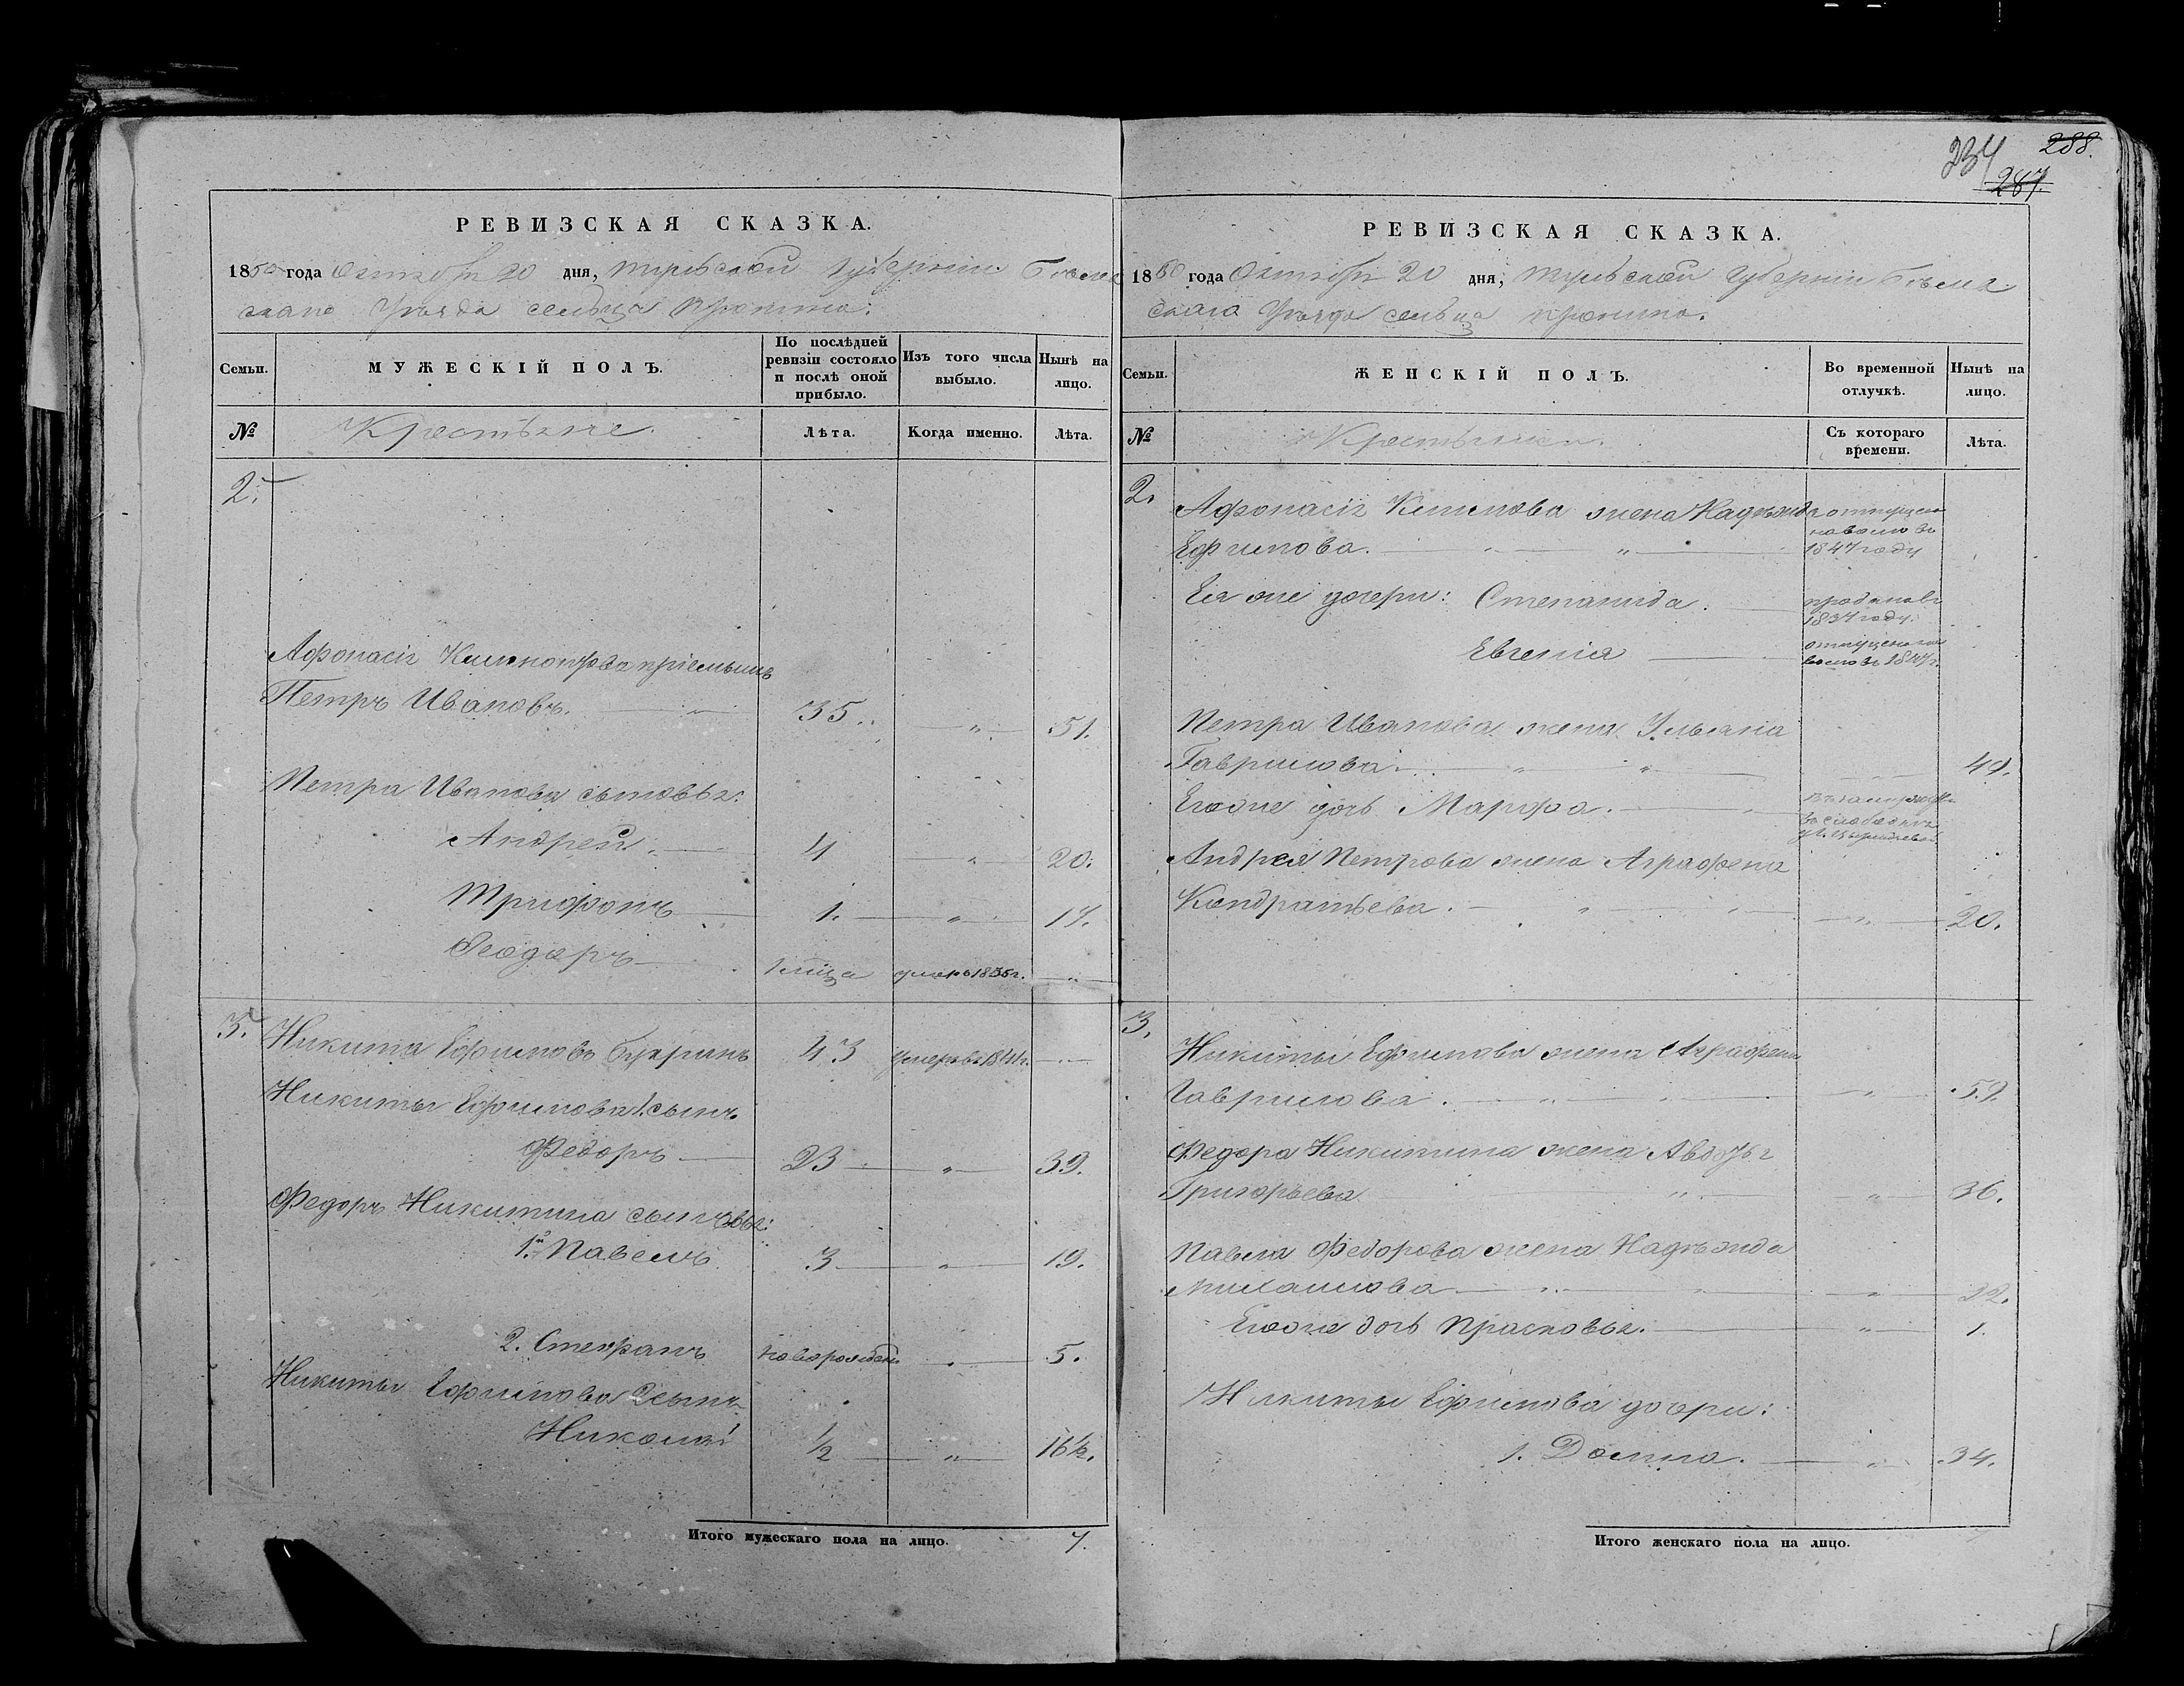 288.
234
287.
РЕВИЗСКАЯ СКАЗКА.
1850 года Октября 20 дня, Тульской Губернии Бѣлев
скаго Уѣзда сельца Кронина.
Семьи.
МУЖЕСКІЙ ПОЛЪ.
По послѣдней ревизіи состояло и послѣ оной прибыло.
Изъ того числа выбыло.
Нынѣ на лицо.
№
Крестьяне.
Лѣта.
Когда именно.
Лѣта.
2.
Афонасія приемышъ
Петръ Ивановъ. 35. " 51.
Петра Иванова сыновья:
Андрей. 4 " 20.
Трифонъ 1. " 17.
Феодоръ умеръ 1835 г. "
3. Никита Ефимовъ 43 умеръ въ 1841 г.
Никиты Ефимова 1. сынъ
Федоръ 23 " 39.
Федоръ Никитина сыновья:
1й Павелъ 3 " 19.
2. Стефанъ новорожден " 5.
Никиты Ефимова 2 сынъ
Николай ½ " 16½.
Итого мужескаго пола на лицо. 7.
РЕВИЗСКАЯ СКАЗКА.
1850 года Октября 20 дня, Тульской Губернии Бѣлев
скаго Уѣзда сельца Кронина.
Семьи.
ЖЕНСКІЙ ПОЛЪ.
Во временной отлучкѣ.
Нынѣ на лицо.
№
Крестьянки.
Съ котораго времени.
Лѣта.
2. Афонасія жена Надежда отпущена
Ефимова. на волю въ
1847 году
Ея же дочери: Степанида. продана въ
1837 году.
Евгенія отпущена на
волю въ 1847 г.
Петра Иванова жена Ульяна
Гаврилова. 49.
Егоже дочь Марфа.
Андрея Петрова жена Аграфена
Кондратьева. " 20.
3.
Никиты Ефимова жена Аграфена
Гаврилова. " 59.
Федора Никитина жена Авдотья
Григорьева " 36.
Павла Федорова жена Надежда
Михаилова " 22.
Егоже дочь Прасковья. " 1.
Никиты Ефимова дочери:
1. Домна. " 34.
Итого женскаго пола на лицо.